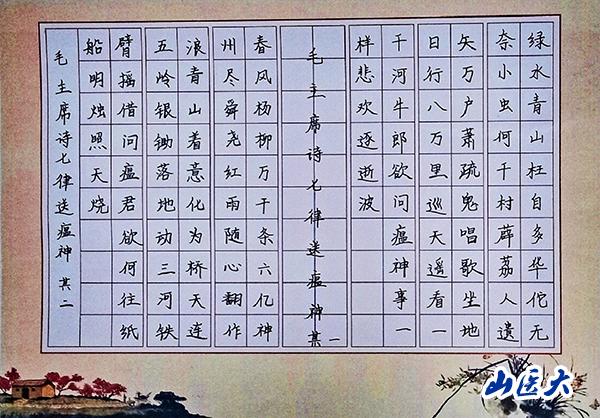 绿水青山枉自多华佗无
奈小虫何千村薜荔人遗
矢万户萧疏鬼唱歌坐地
日行八万里巡天遥看一
千河牛郎欲问瘟神事一
样悲欢逐逝波
毛主席诗七律送瘟神其一
春风杨柳万千条六亿神
州尽舜尧红雨随心翻作
浪青山着意化为桥天连
五岭银锄落地动三河铁
臂摇借问瘟君欲何往纸
船明烛照天烧
毛主席诗七律送瘟神其二
山医大